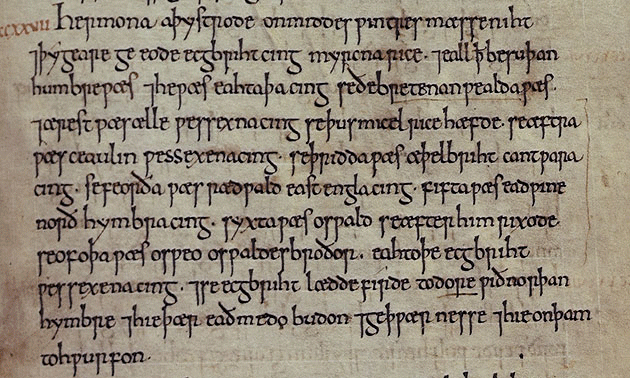 dcccxxvii Her mona aþystrode onmiddes ƿintres mæsseniht
⁊þy geare ge eode ecgbriht cing myrcna rice · ⁊eall ꝥ be suþan
humbre ƿæs ⁊he ƿæs eahtaþa cing seðe bretenanƿealda ƿæs.
⁊ærest ƿæs ælle ƿessexna cing seþus micel rice hæfde. se æftra
ƿæs ceaulin ƿessexena cing · se þridda ƿæs æþelbriht cantƿara
cing · se feorða ƿæs rædƿald east engla cing · fifta ƿæs eadƿine
norð hymbra cing · syxta ƿæs osƿald se æfter him rixode
seofoþa ƿæs osƿeo osƿaldes broðor. eahtoþe ecgbriht
ƿessexena cing · ⁊se ecgbriht lædde firde to dore ƿið norþan
hymbre ⁊hie þær eaðmedo budon ⁊geþƿær nesse ⁊hie on þam
tohƿurfon ·